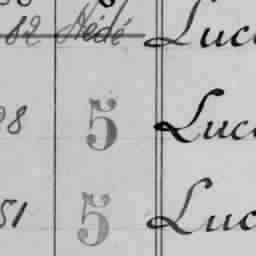 82 Dédé Luc
8 5 Luc
51 5 Luc